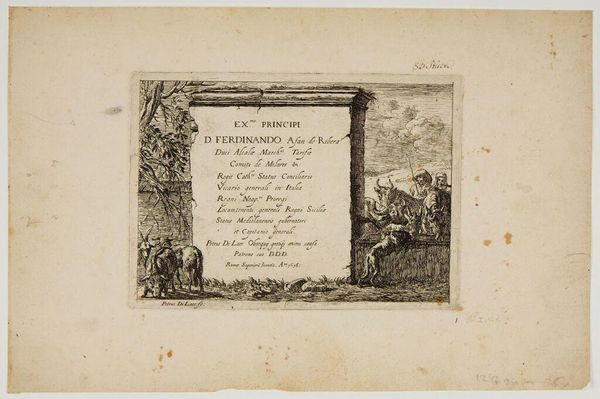 EX.mo PRINCIPI
D. FERDINANDO Afan de Ribera
Duci Alcalæ March.ni Tarifæ
Comiti de Molares &
Regis Cath.ci Status Conciliario
Vicario generali in Italia
Regni Neap.ni Proregi
Locumtenenti generali Regno Siciliæ
Status Mediolanensis gubernatori
et Capitanio generali.
Petrus De Laer Obsequij gratiq animi causa
Patrono suo D.D.D.
Romæ Superiorū licentia. A.no 1636.
Petrus De Laer fe.
1